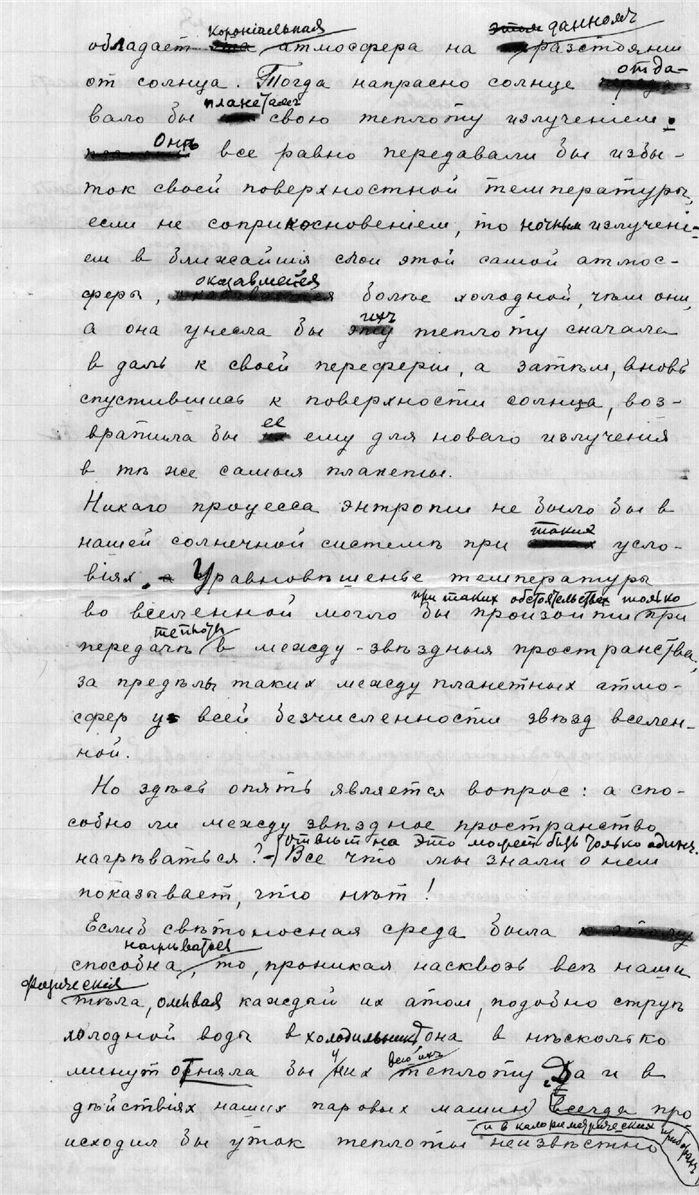 обладает корональная атмосфера на данномъ разстоянии
от солнца. Тогда напрасно солнце отда-
вало бы планетамъ свою теплоту излучением.
Онѣ все равно передавали бы избы-
ток своей поверхностной температуры,
если не соприкосновением, то ночным излучені-
ем в ближайшія слои этой самой атмос-
феры, оказавшейся болѣе холодной, чѣм они,
а она унесла бы ихъ теплоту сначала
в даль к своей переферіи, а затѣм, вновь
спустившись к поверхности солнца, воз-
вратила бы ее ему для новаго излученія
в тѣ же самыя планеты.
Никаго процесса энтропии не было бы в
нашей солнечной системѣ при таких усло-
віях. Уравновѣшенье температуры
во вселенной могло бы при таких обстоятельствах только произойти при
передачѣ теплоты в между-звѣздныя пространства,
за предѣлы таких между планетных атмо-
сфер у всей безчисленности звѣзд вселен-
ной.
Но здѣсь опять является вопрос: а спо-
собно ли между звѣздное пространство
нагрѣваться? – Отвѣт на это может быть только один:
Все что мы знали о нем
показывает, что нѣт!
Еслиб свѣтоносная среда была
способна нагрѣваться, то, проникая насквозь всѣ наши
физическія тѣла, омывая каждый их атом, подобно струѣ
холодной воды в холодильник, она в нѣсколько
минут отняла бы у них всю ихъ теплоту. Да и в
дѣйствіях наших паровых машин и в калориметрических приборах всегда про
исходил бы уток теплоты неизвѣстно